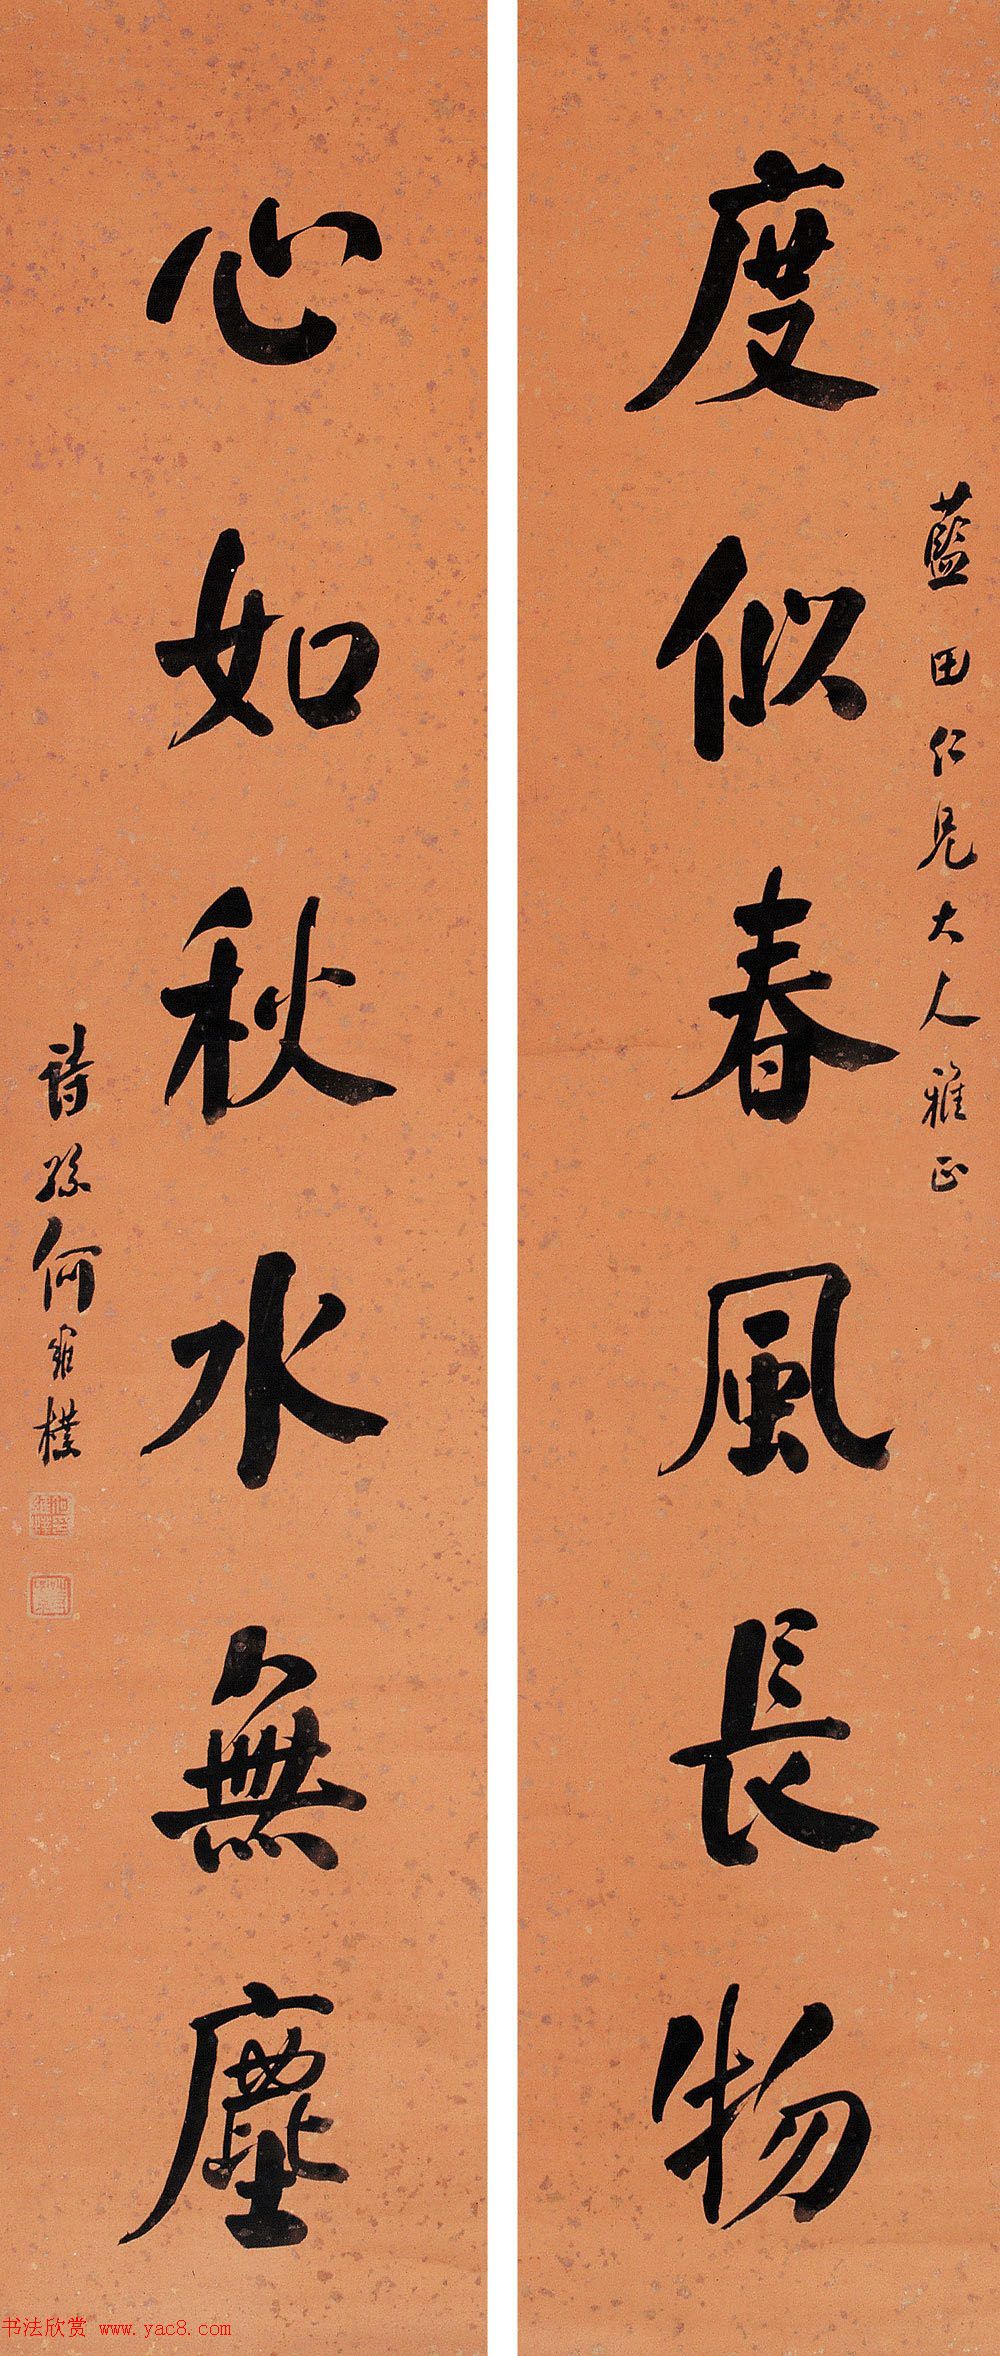 藍田仁兄大人雅正
度似春風長物
心如秋水無塵
詩孫何維樸
书法欣赏 www.yac8.com